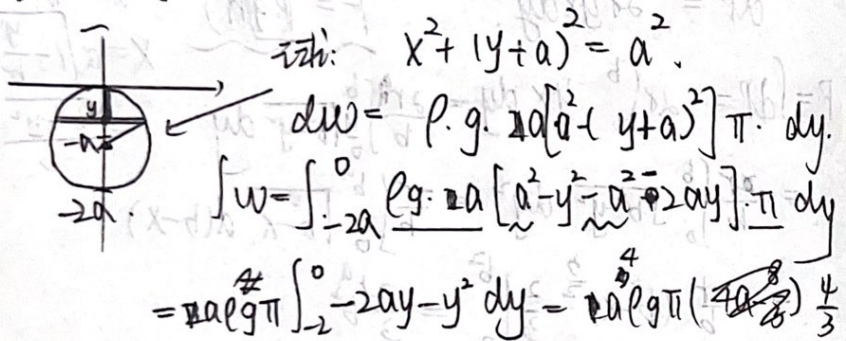 x² + (y+a)² = a².
y
dw = ρ.g. a[a²-(y+a)²]π. dy.
-a
∫w = ∫_{-2a}^{0} ρg. a[a²-y²-a²-2ay].π dy
-2a.
= aρgπ ∫_{-2}^{0} -2ay-y² dy = a⁴ρgπ( ) 4/3